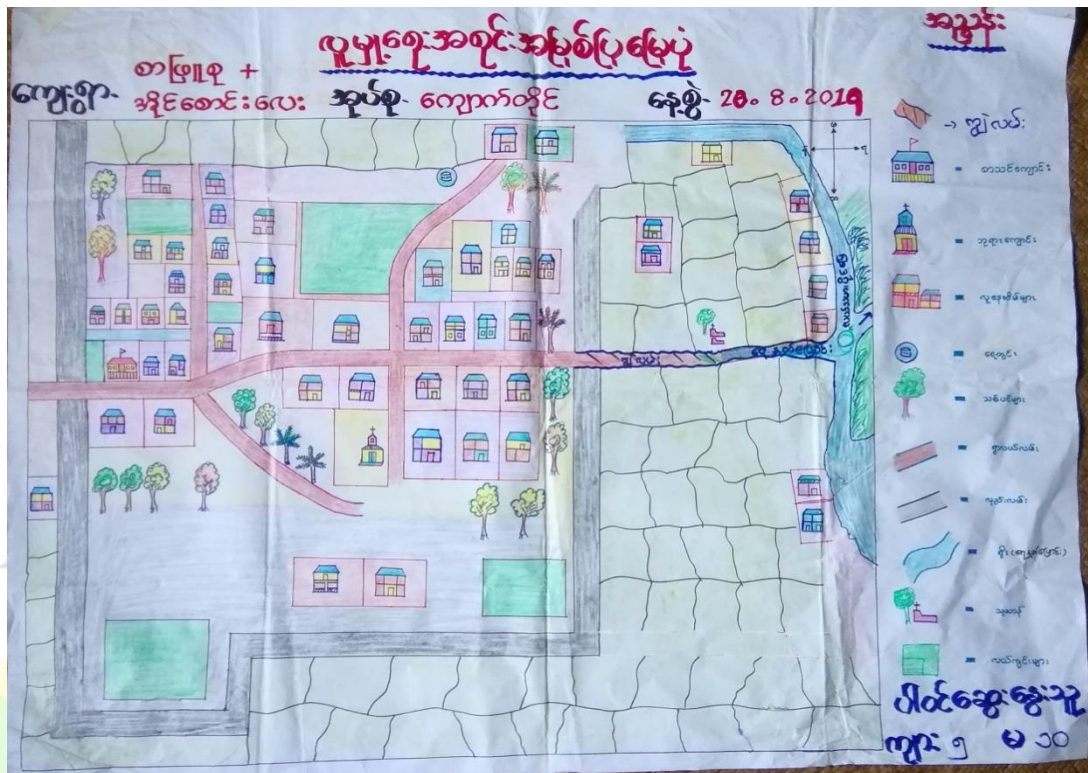 လူမှုရေးအရင်းအမြစ်ပြမြေပုံ
ကျေးရွာ- စာဖြူစု +
အိုင်စောင်းလေး
အုပ်စု- ကျောက်တိုင်
နေ့စွဲ- 20.8.2019
အညွှန်း
→ ကျွဲလမ်း
= စာသင်ကျောင်း
= ဘုရားကျောင်း
= လူနေအိမ်များ
= ရေတွင်း
= သစ်ပင်များ
= ရွာလယ်လမ်း
= လှည်းလမ်း
= သုသာန်
= လယ်ကွင်းများ
ကျွဲလမ်း
ပါဝင်ဆွေးနွေးသူ
ကျား ၅ မ ၁၀